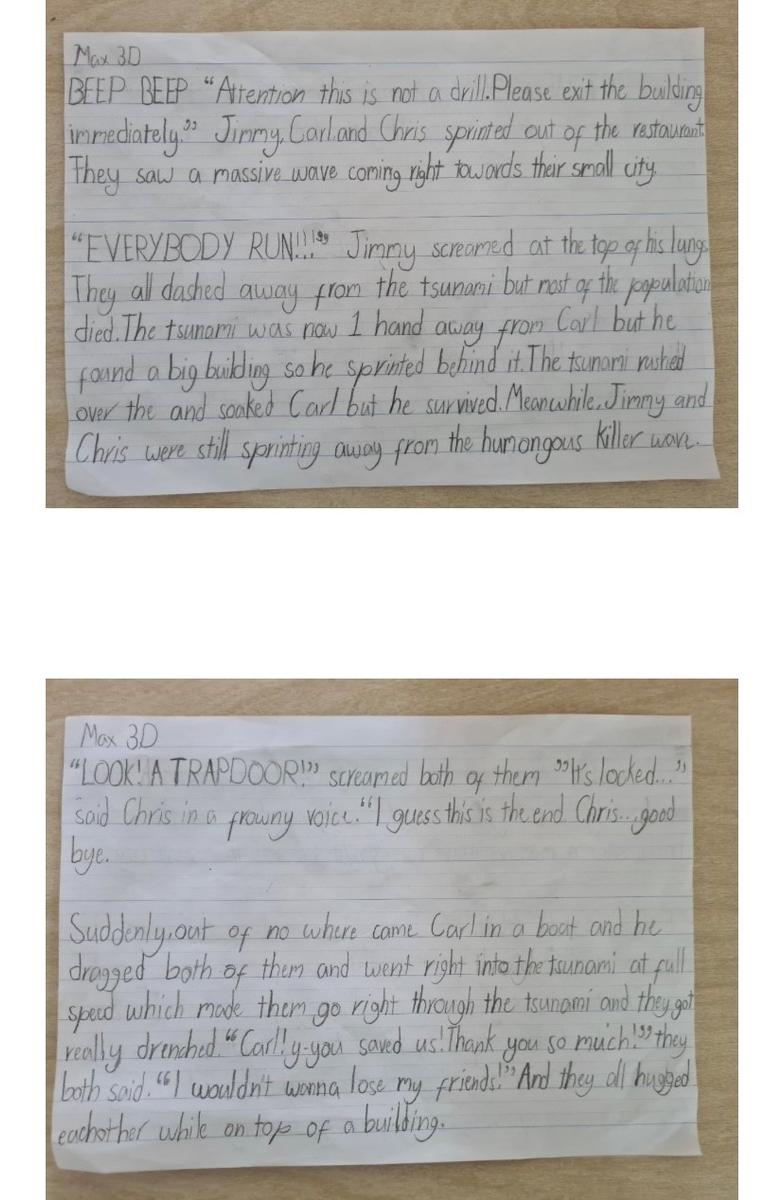 Max 3D
BEEP BEEP “Attention this is not a drill.Please exit the building
immediately.” Jimmy, Carl and Chris sprinted out of the restaurant.
They saw a massive wave coming right towards their small city.
“EVERYBODY RUN!!!” Jimmy screamed at the top of his lungs.
They all dashed away from the tsunami but most of the population
died.The tsunami was now 1 hand away from Carl but he
found a big building so he sprinted behind it.The tsunami rushed
over the and soaked Carl but he survived.Meanwhile,Jimmy and
Chris were still sprinting away from the humongous killer wave.
Max 3D
“LOOK! A TRAPDOOR!” screamed both of them ”It's locked...”
said Chris in a frowny voice.“I guess this is the end Chris...good
bye.
Suddenly,out of no where came Carl in a boat and he
dragged both of them and went right into the tsunami at full
speed which made them go right through the tsunami and they got
really drenched.“Carl!y-you saved us!Thank you so much!” they
both said.“I wouldn't wanna lose my friends!” And they all hugged
eachother while on top of a building.